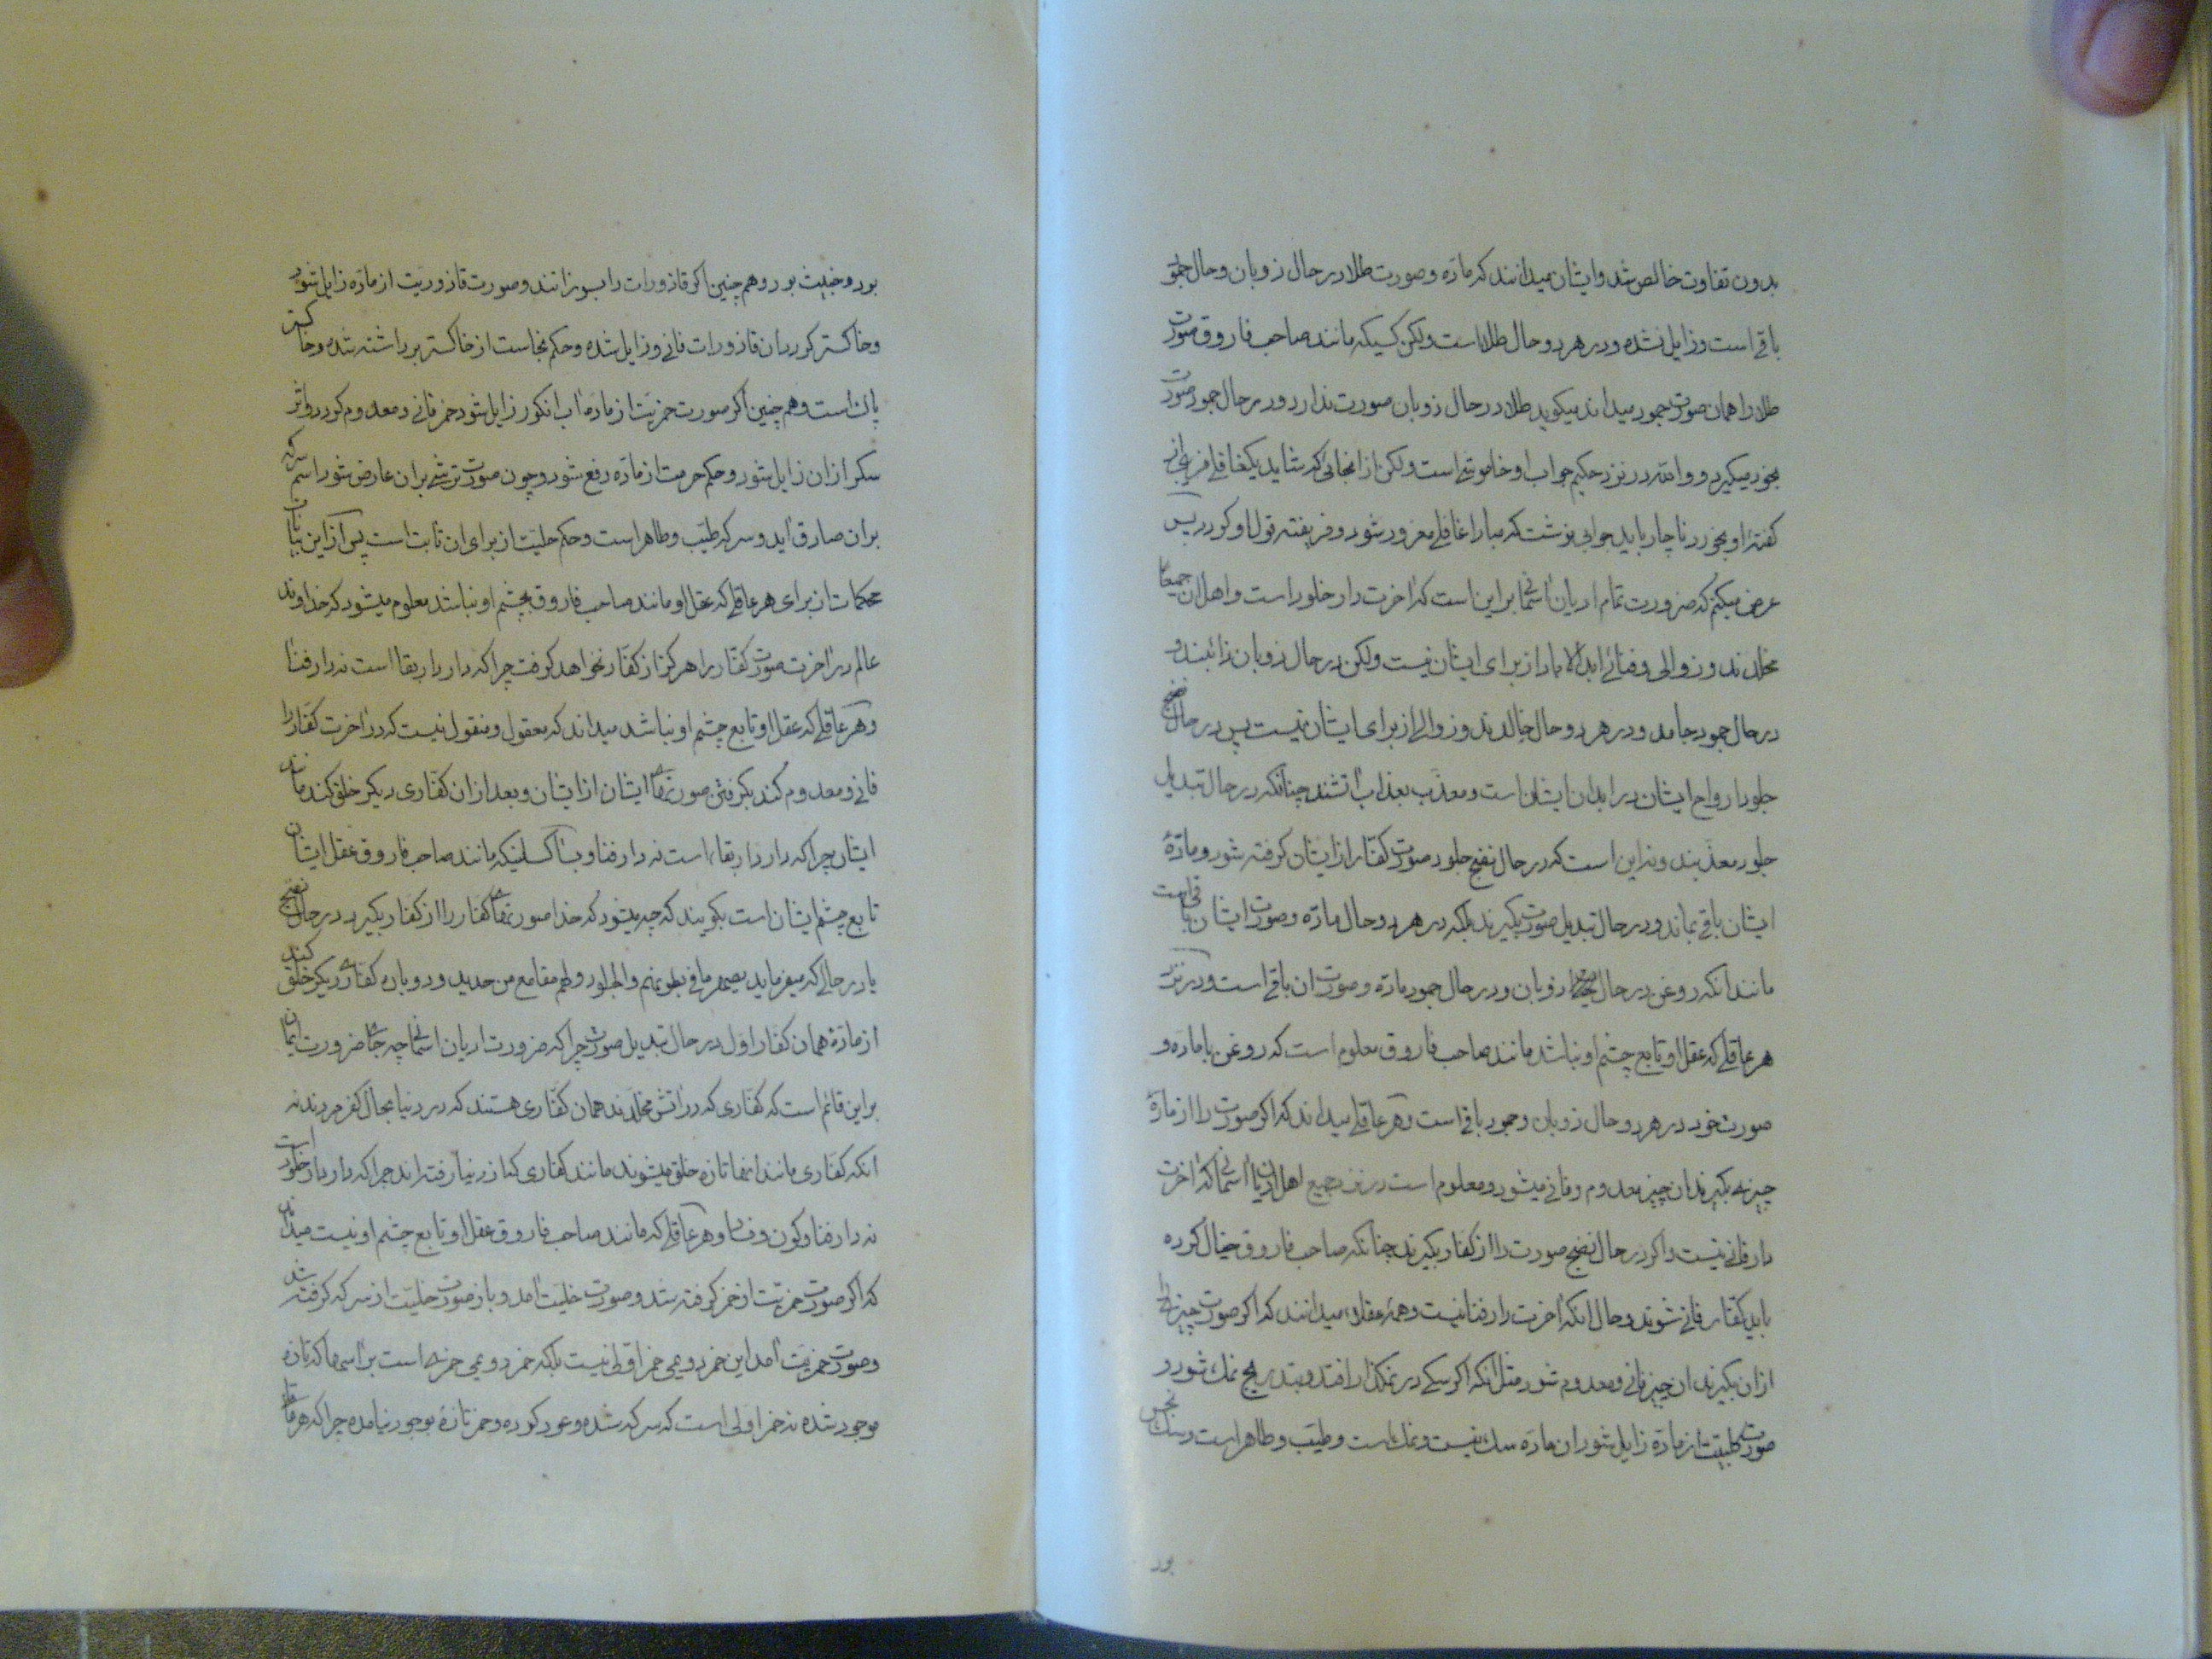 بدون تفاوت خالص شد وایشان میدانند که ماده وصورت طلا در حال ذوبان وحال جمود
باقی است وزایل نشده ودر هر دو حال طلا است ولکن کسیکه مانند صاحب فاروق صورت
طلا را همان صورت جمود میداند میگوید طلا در حال ذوبان صورت ندارد ودر حال جمود صورت
بخود میگیرد ووالله در نزد حکیم جواب او خاموشی است ولکن از انجائی که شاید یک غافلی فریبی از
گفته او بخورد ناچار باید جوابی نوشت که مبادا غافلی مغرور شود وفریفته قول او گردد پس
عرض میکنم که ضرورت تمام ادیان اسمانی براین است که اخرت دار خلود است واهل ان جمیعا
مخلدند وزوالی وفنائی ابد الاباد از برای ایشان نیست ولکن در حال ذوبان ذائبند و
در حال جمود جامد ودر هر دو حال خالدند وزوالی از برای ایشان نیست پس در حال نضج
جلود ارواح ایشان در ابدان ایشان است ومعذب بعذاب اتشند چنانکه در حال تبدیل
جلود معذبند ونه این است که در حال نضج جلود صورت کفار از ایشان گرفته شود ومادهٔ
ایشان باقی بماند ودر حال تبدیل صورت بگیرند بلکه در هر دو حال ماده وصورت ایشان باقی است
مانند انکه روغن در حال ذوبان ودر حال جمود ماده وصورت ان باقی است ودر نزد
هر عاقلی که عقل او تابع چشم او نباشد مانند صاحب فاروق معلوم است که روغن با ماده و
صورت خود در هر دو حال ذوبان وجمود باقی است وهر عاقلی میداند که اگر صورت را از مادهٔ
چیزی بگیرند ان چیز معدوم وفانی میشود ومعلوم است در نزد جمیع اهل ادیان اسمانی که اخرت
دار فانی نیست واگر در حال نضج صورت را از کفار بگیرند چنانکه صاحب فاروق خیال کرده
باید کفار فانی شوند وحال انکه اخرت دار فنا نیست وهمهٔ عقلاء میدانند که اگر صورت چیزی را
ازان بگیرند ان چیز فانی ومعدوم شود مثل انکه اگر سگی در نمکذار افتد وبتدریج نمک شود و
صورت کلبیت از ماده زایل شود ان ماده سگ نیست ونمک است وطیب وطاهر است وسگ نجس
بود
بود وخبیث بود وهم چنین اگر قاذورات را بسوزانند وصورت قاذوریت از ماده زایل شود
وخاکستر گردد ان قاذورات فانی وزایل شده وحکم نجاست از خاکستر برداشته شده وخاکستر
پاک است وهم چنین اگر صورت خمریت از ماده اب انگور زایل شود خمر فانی ومعدوم گردد واثر
سکر ازان زایل شود وحکم حرمت از ماده رفع شود وچون صورت ترشی بران عارض شود اسم سرکه
بران صادق اید وسرکه طیب وطاهر است وحکم حلیت از برای ان ثابت است پس از این بیان
محکمات از برای هر عاقلی که عقل او مانند صاحب فاروق بچشم او نباشد معلوم میشود که خداوند
عالم در اخرت صورت کفار را هرگز از کفار نخواهد گرفت چرا که دار دار بقا است نه دار فنا
وهر عاقلی که عقل او تابع چشم او نباشد میداند که معقول ومنقول نیست که در اخرت کفار را
فانی ومعدوم کند بگرفتن صورتهای ایشان از ایشان وبعد ازان کفاری دیگر خلق کند مانند
ایشان چرا که دار دار بقاء است نه دار فنا وبسا کسانیکه مانند صاحب فاروق عقل ایشان
تابع چشم ایشان است بگویند که چه میشود که خدا صورتهای کفار را از کفار بگیرد در حال نضج
یا در حالی که میفرماید یصهر ما فی بطونهم والجلود ولهم مقامع من حدید ودوباره کفاری دیگر خلق کند
از مادهٔ همان کفار اول در حال تبدیل صورت چرا که ضرورت ادیان اسمانی چه جای ضرورت ایمان
براین قائم است که کفاری که در اتش مخلدند همان کفاری هستند که در دنیا بحال کفر مردند نه
انکه کفاری مانند انها تازه خلق میشوند مانند کفاری که از دنیا رفته اند چرا که دار دار خلود است
نه دار فنا وکون وفساد وهر عاقلی که مانند صاحب فاروق عقل او تابع چشم او نیست میداند
که اگر صورت خمریت از خمر گرفته شد وصورت خلیت امد وباز صورت خلیت از سرکه گرفته شد
وصورت خمریت امد این خمر دویمی خمر اولی نیست بلکه خمر دویمی خمری است براسها که تازه
موجود شده نه خمر اولی است که سرکه شده وعود کرده وخمر تازهٔ بوجود نیامده چرا که هر عاقلی